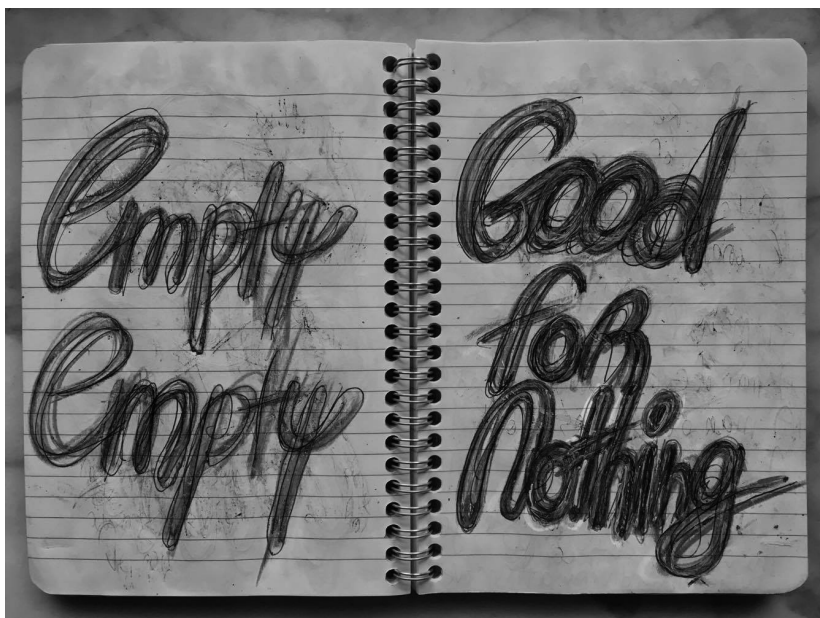 empty
empty
Good
foR
Nothing